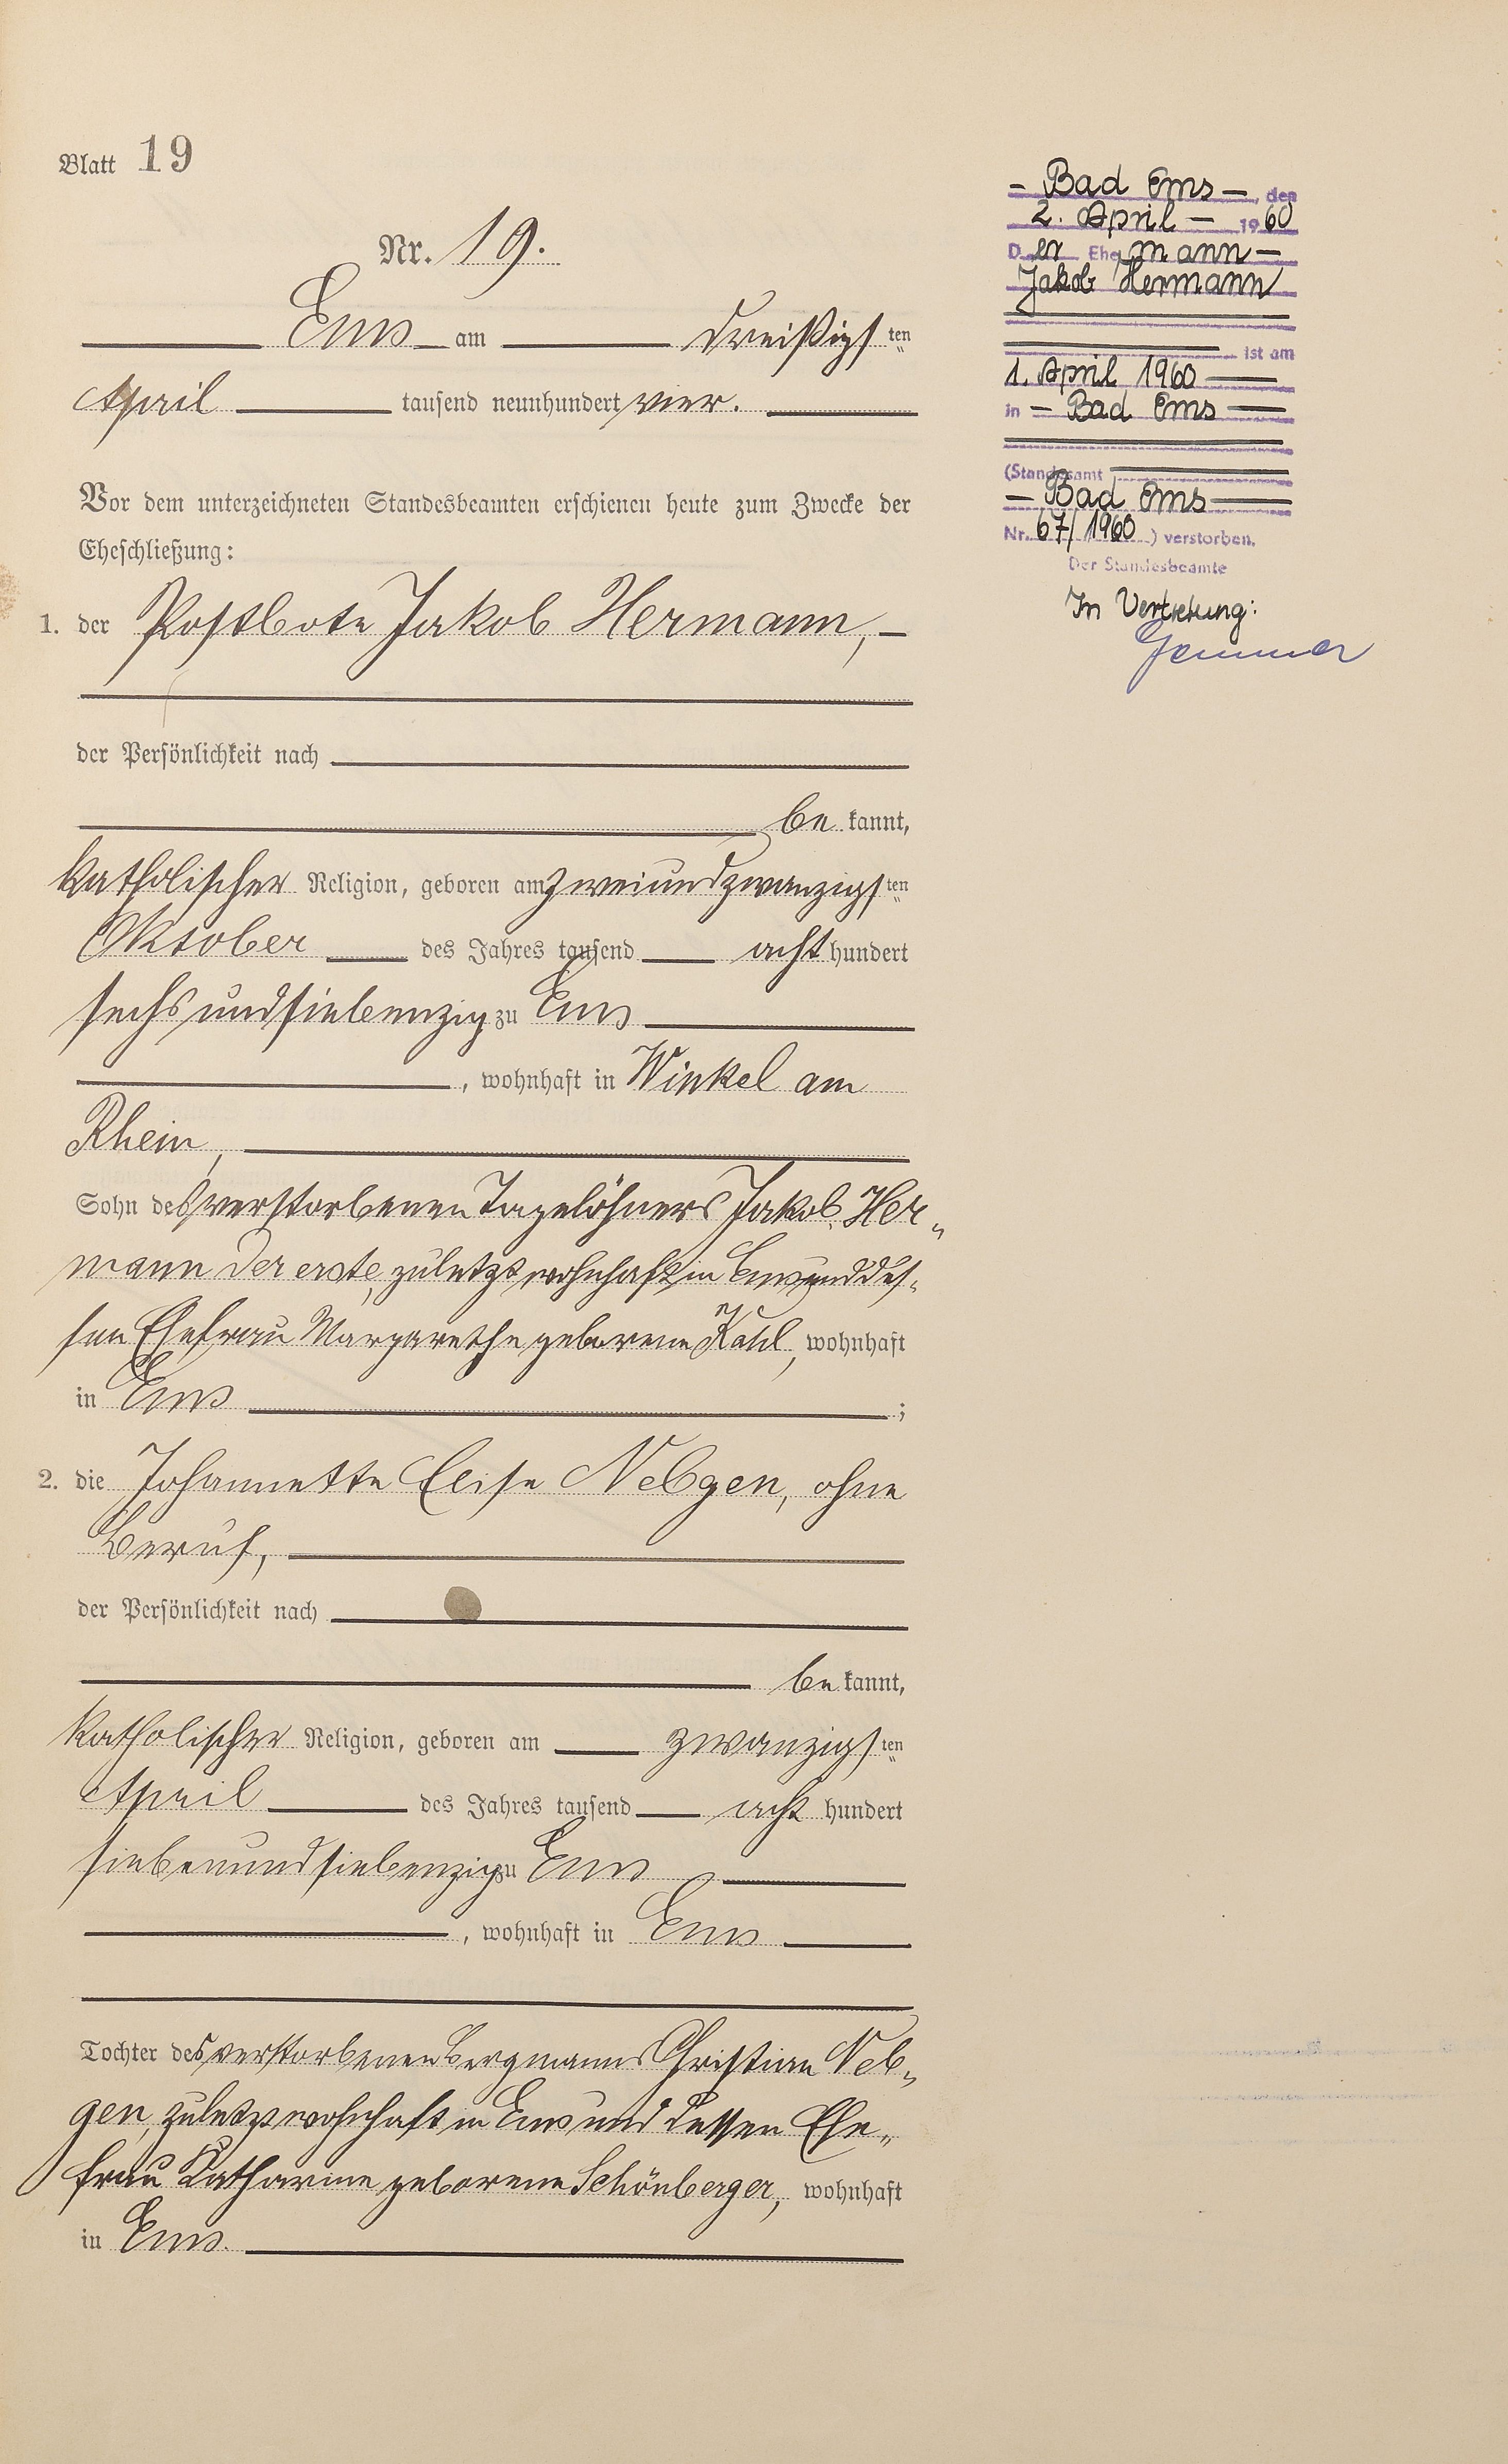 Blatt 19
Nr. 19.
Ems am dreißigsten
April tausend neunhundert vier.
Vor dem unterzeichneten Standesbeamten erschienen heute zum Zwecke der
Eheschließung:
1. der Postbote Jakob Hermann,
der Persönlichkeit nach
bekannt,
katholischer Religion, geboren am zweiundzwanzigsten
Oktober des Jahres tausend acht hundert
sechsundsiebenzig zu Ems
, wohnhaft in Winkel am
Rhein,
Sohn des verstorbenen Tagelöhners Jakob Her„
mann der erste, zuletzt wohnhaft in Ems und des„
sen Ehefrau Margarethe geborene, wohnhaft
in Ems ;
2. die Johannette Elise Nebgen, ohne
Beruf,
der Persönlichkeit nach
bekannt,
katholischer Religion, geboren am zwanzigsten
April des Jahres tausend acht hundert
siebenundsiebenzig zu Ems
, wohnhaft in Ems
Tochter des verstorbenen Bergmanns Christian Neb„
gen, zuletzt wohnhaft in Ems und dessen Ehe„
frau Katharine geborene Schönberger, wohnhaft
in Ems.
- Bad Ems -, den
2. April - 1960
Der Ehemann -
Jakob Hermann
ist am
1. April 1960
in - Bad Ems
(Standesamt
- Bad Ems
Nr. 67/1960) verstorben.
Der Standesbeamte
In Vertretung: